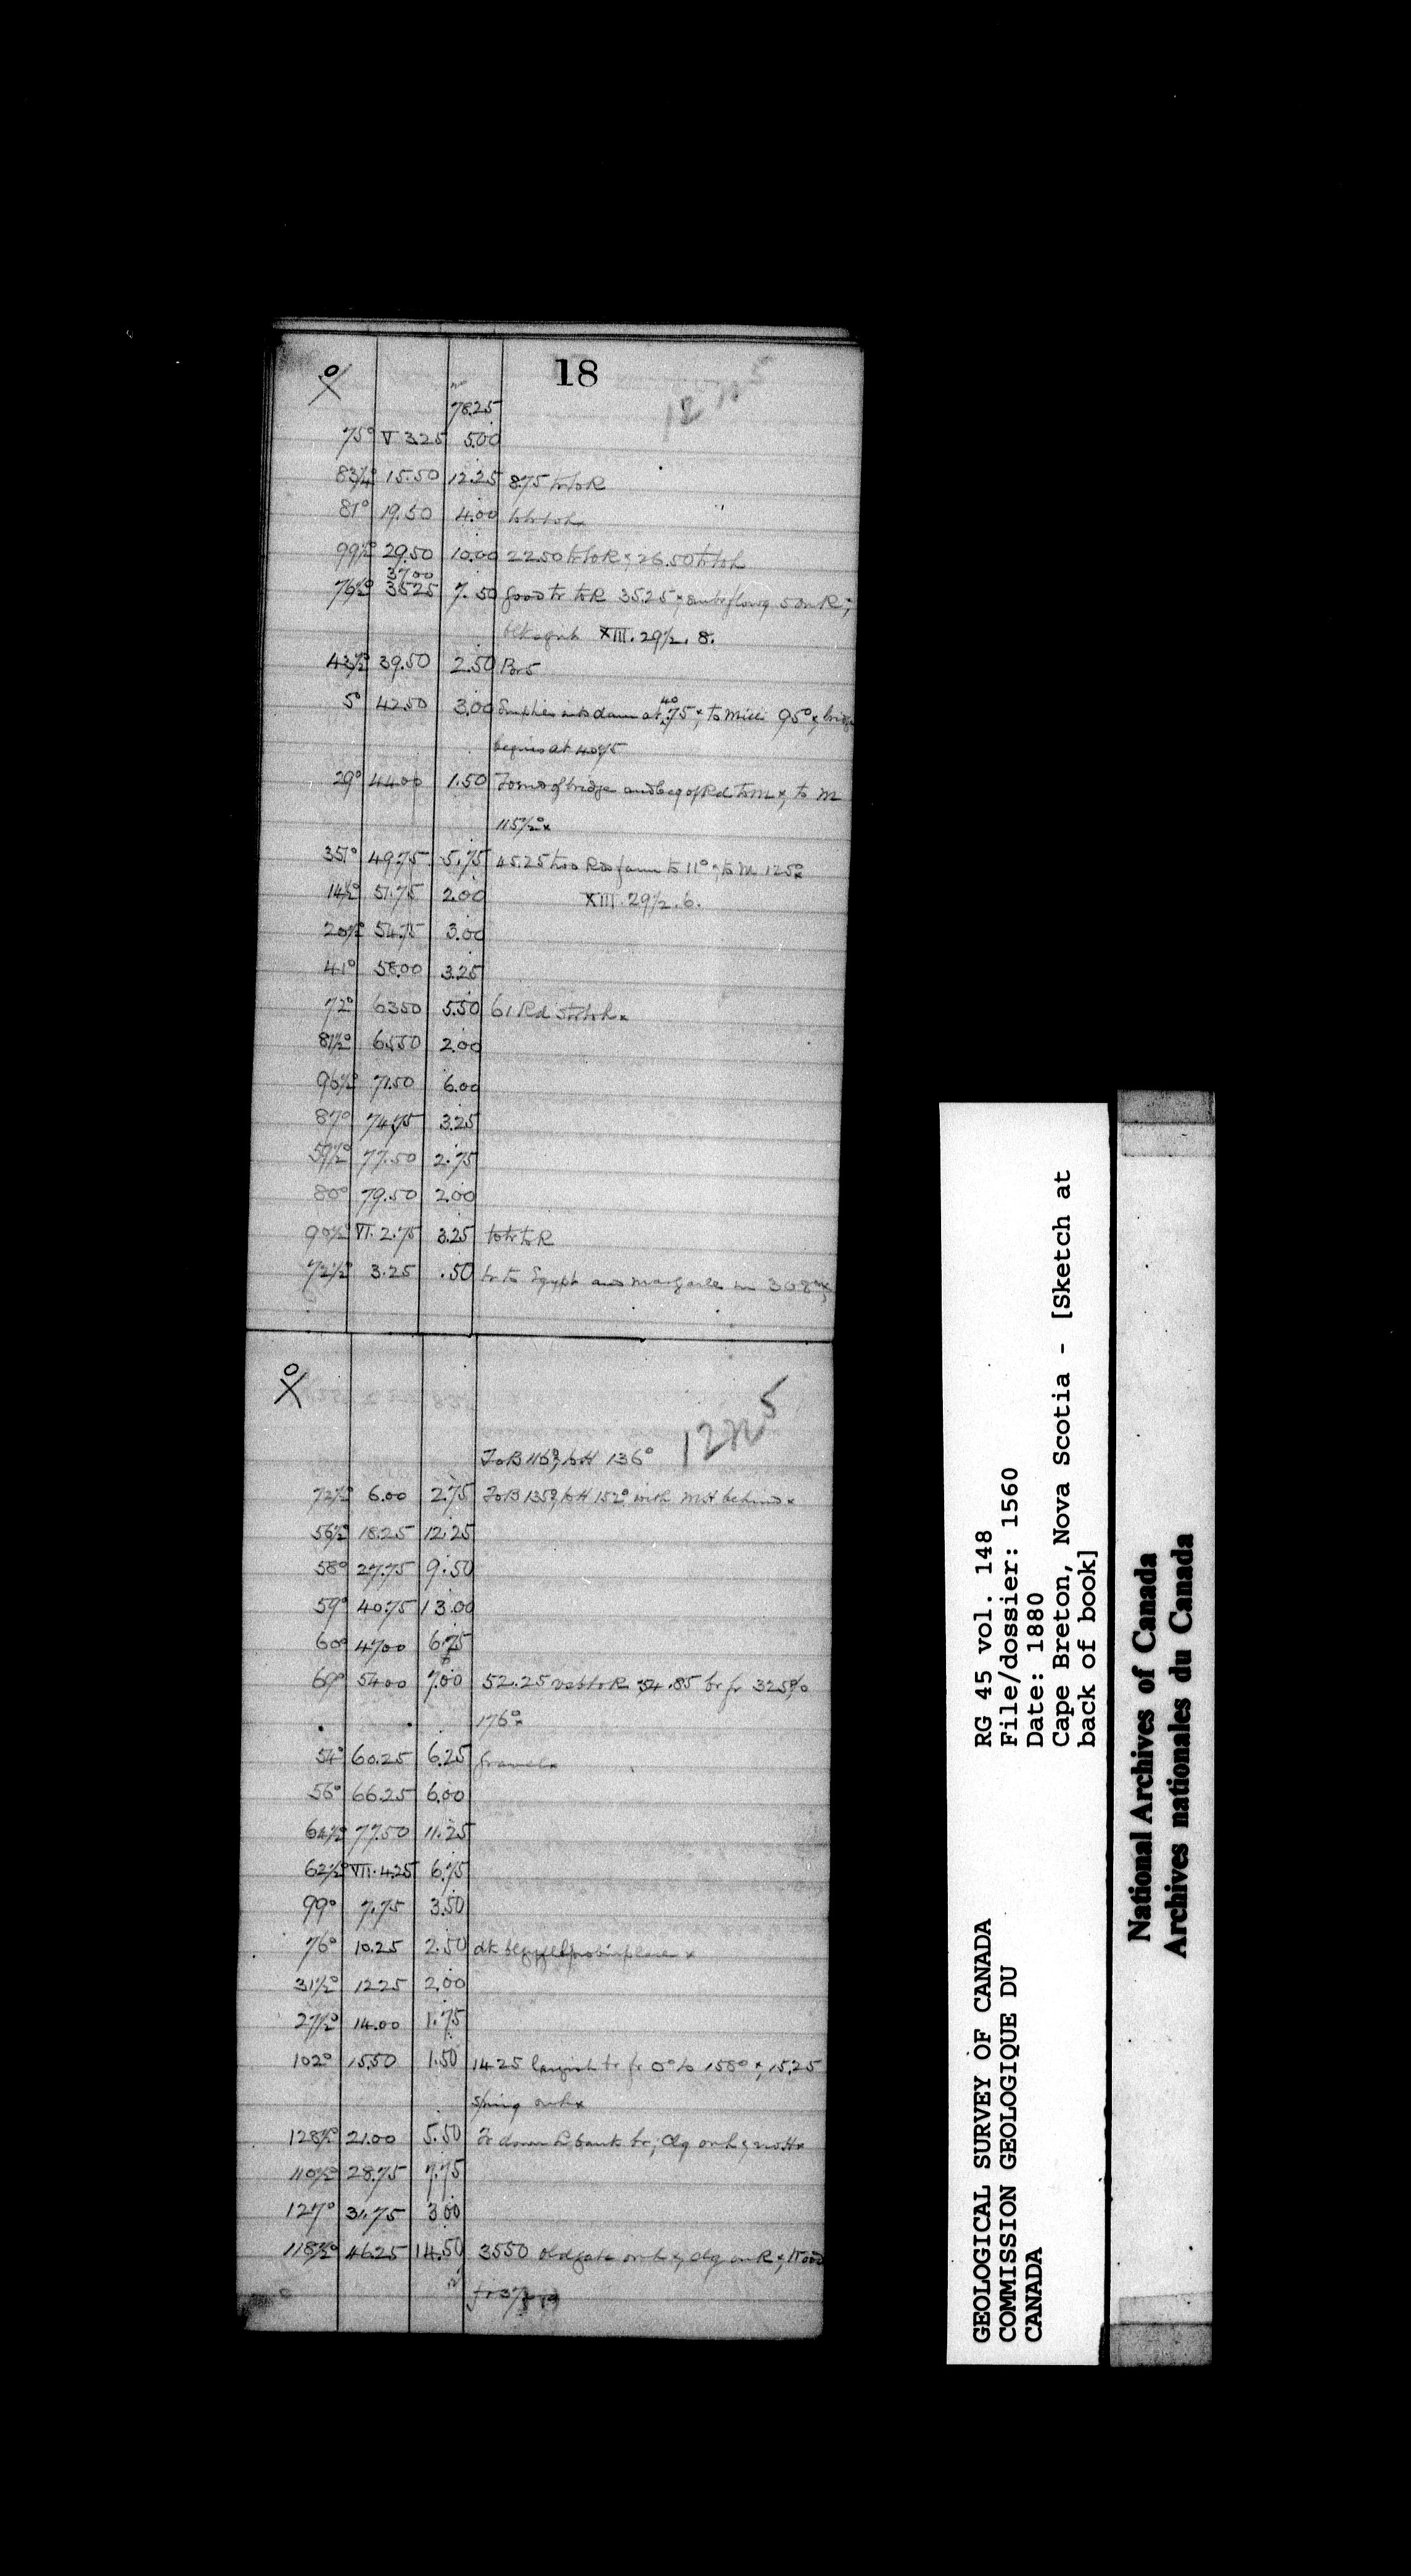 18
12 N 5
78.25
75° V 3.25 5.00
83¼° 15.50 12.25 8.75 tr to R
81° 19.50 4.00
99½° 29.50 10.00 22.50 tr to R; 26.50 tr to L
37.00
76½° 35.25 7.50 Good tr to R 35.25 x; on R;
XIII. 29½. 8.
43½° 39.50 2.50
40
5° 42.50 3.00 Empties into dam at .75 x; to Mill 95° x;
begins at 40.75
29° 44.00 1.50 To end of bridge and beg of Rd to M x; to M
115½° x
351° 49.75 5.75 45.25 to 11°; to M 125° x
14½° 51.75 2.00 XIII. 29½. 6.
20½° 54.75 3.00
41° 58.00 3.25
72° 63.50 5.50 61 Rd
81½° 65.50 2.00
96½° 71.50 6.00
87° 74.75 3.25
57½° 77.50 2.75
80° 79.50 2.00
90½° VI. 2.75 3.25 to tr to R
72½° 3.25 .50 tr to Egypt and Margaree 308° x
12 N 5
To B 116°; to H 136°
72½° 6.00 2.75 To B 135°; to H 152° with M H behind x
56½° 18.25 12.25
58° 27.75 9.50
59° 40.75 13.00
60° 47.00 6.75
69° 54.00 7.00 52.25 to R 54.85 br fr 325° to
176° x
54° 60.25 6.25 Gravel x
56° 66.25 6.00
64½° 77.50 11.25
62½° VII. 4.25 6.75
99° 7.75 3.50
76° 10.25 2.50 dk
31½° 12.25 2.00
27½° 14.00 1.75
102° 15.50 1.50 14.25 largish tr fr 0° to 158° x; 15.25
spring on L x
128½° 21.00 5.50 To down L bank br; clg on L;
110½° 28.75 7.75
127° 31.75 3.00
118½° 46.25 14.50 35.50 old gate on L x; clg on R x; Wood
GEOLOGICAL SURVEY OF CANADA
COMMISSION GEOLOGIQUE DU
CANADA
RG 45 vol. 148
File/dossier: 1560
Date: 1880
Cape Breton, Nova Scotia - [Sketch at
back of book]
National Archives of Canada
Archives nationales du Canada